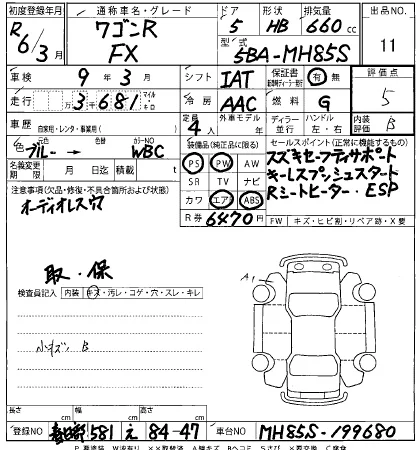 初度登録年月 通称車名・グレード ドア 形状 排気量 出品No.
R6/3月 ワゴンR FX 5 HB 660cc 11
型式 5BA-MH85S
車検 9年 3月 シフト IAT 保証書 有・無 評価点 5
走行 3千681 マイル キロ 冷房 AAC 燃料 G
車歴 自家用・レンタ・事業用( ) 定員 4人 外車モデル 年 ディーラー 並行 ハンドル 左・右 内装評価 B
色 元色 ブルー→ 色替 カラーNO WBC 装備品(純正品に限る) セールスポイント(正常に機能するもの)
名義変更期限 月 日迄 積載 t PS PW AW スズキセーフティサポート
注意事項(欠品・修復・不具合箇所および状態) SR TV ナビ キーレスプッシュスタート
オーディオレス穴 カワ エア ABS Rシートヒーター・ESP
R券 6470円 FW キズ・ヒビ割・リペア跡・X要
取・保
検査員記入 内装 キズ・汚レ・コゲ・穴・スレ・キレ
A1
小キズ B
長さ cm 幅 cm 高さ cm
登録NO 581 え 84-47 車台NO MH85S-199680